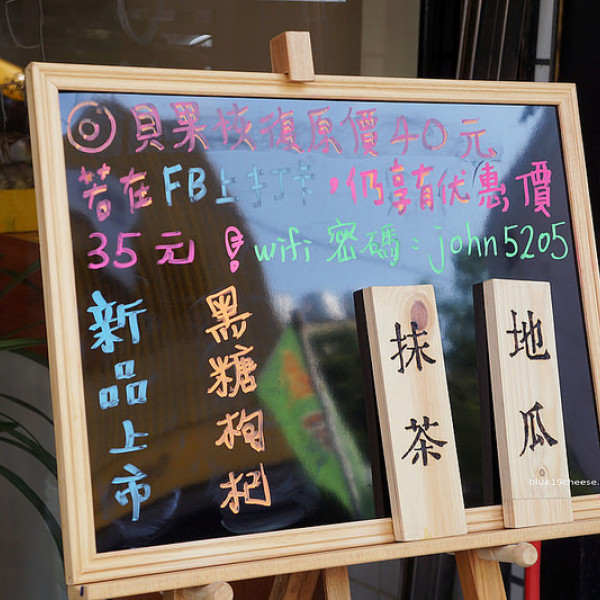 ◎貝果恢復原價40元
若在FB上打卡，仍享有優惠價
35元！wifi密碼：john5205
新品上市
黑糖枸杞
抹茶
地瓜
blue19cheese.